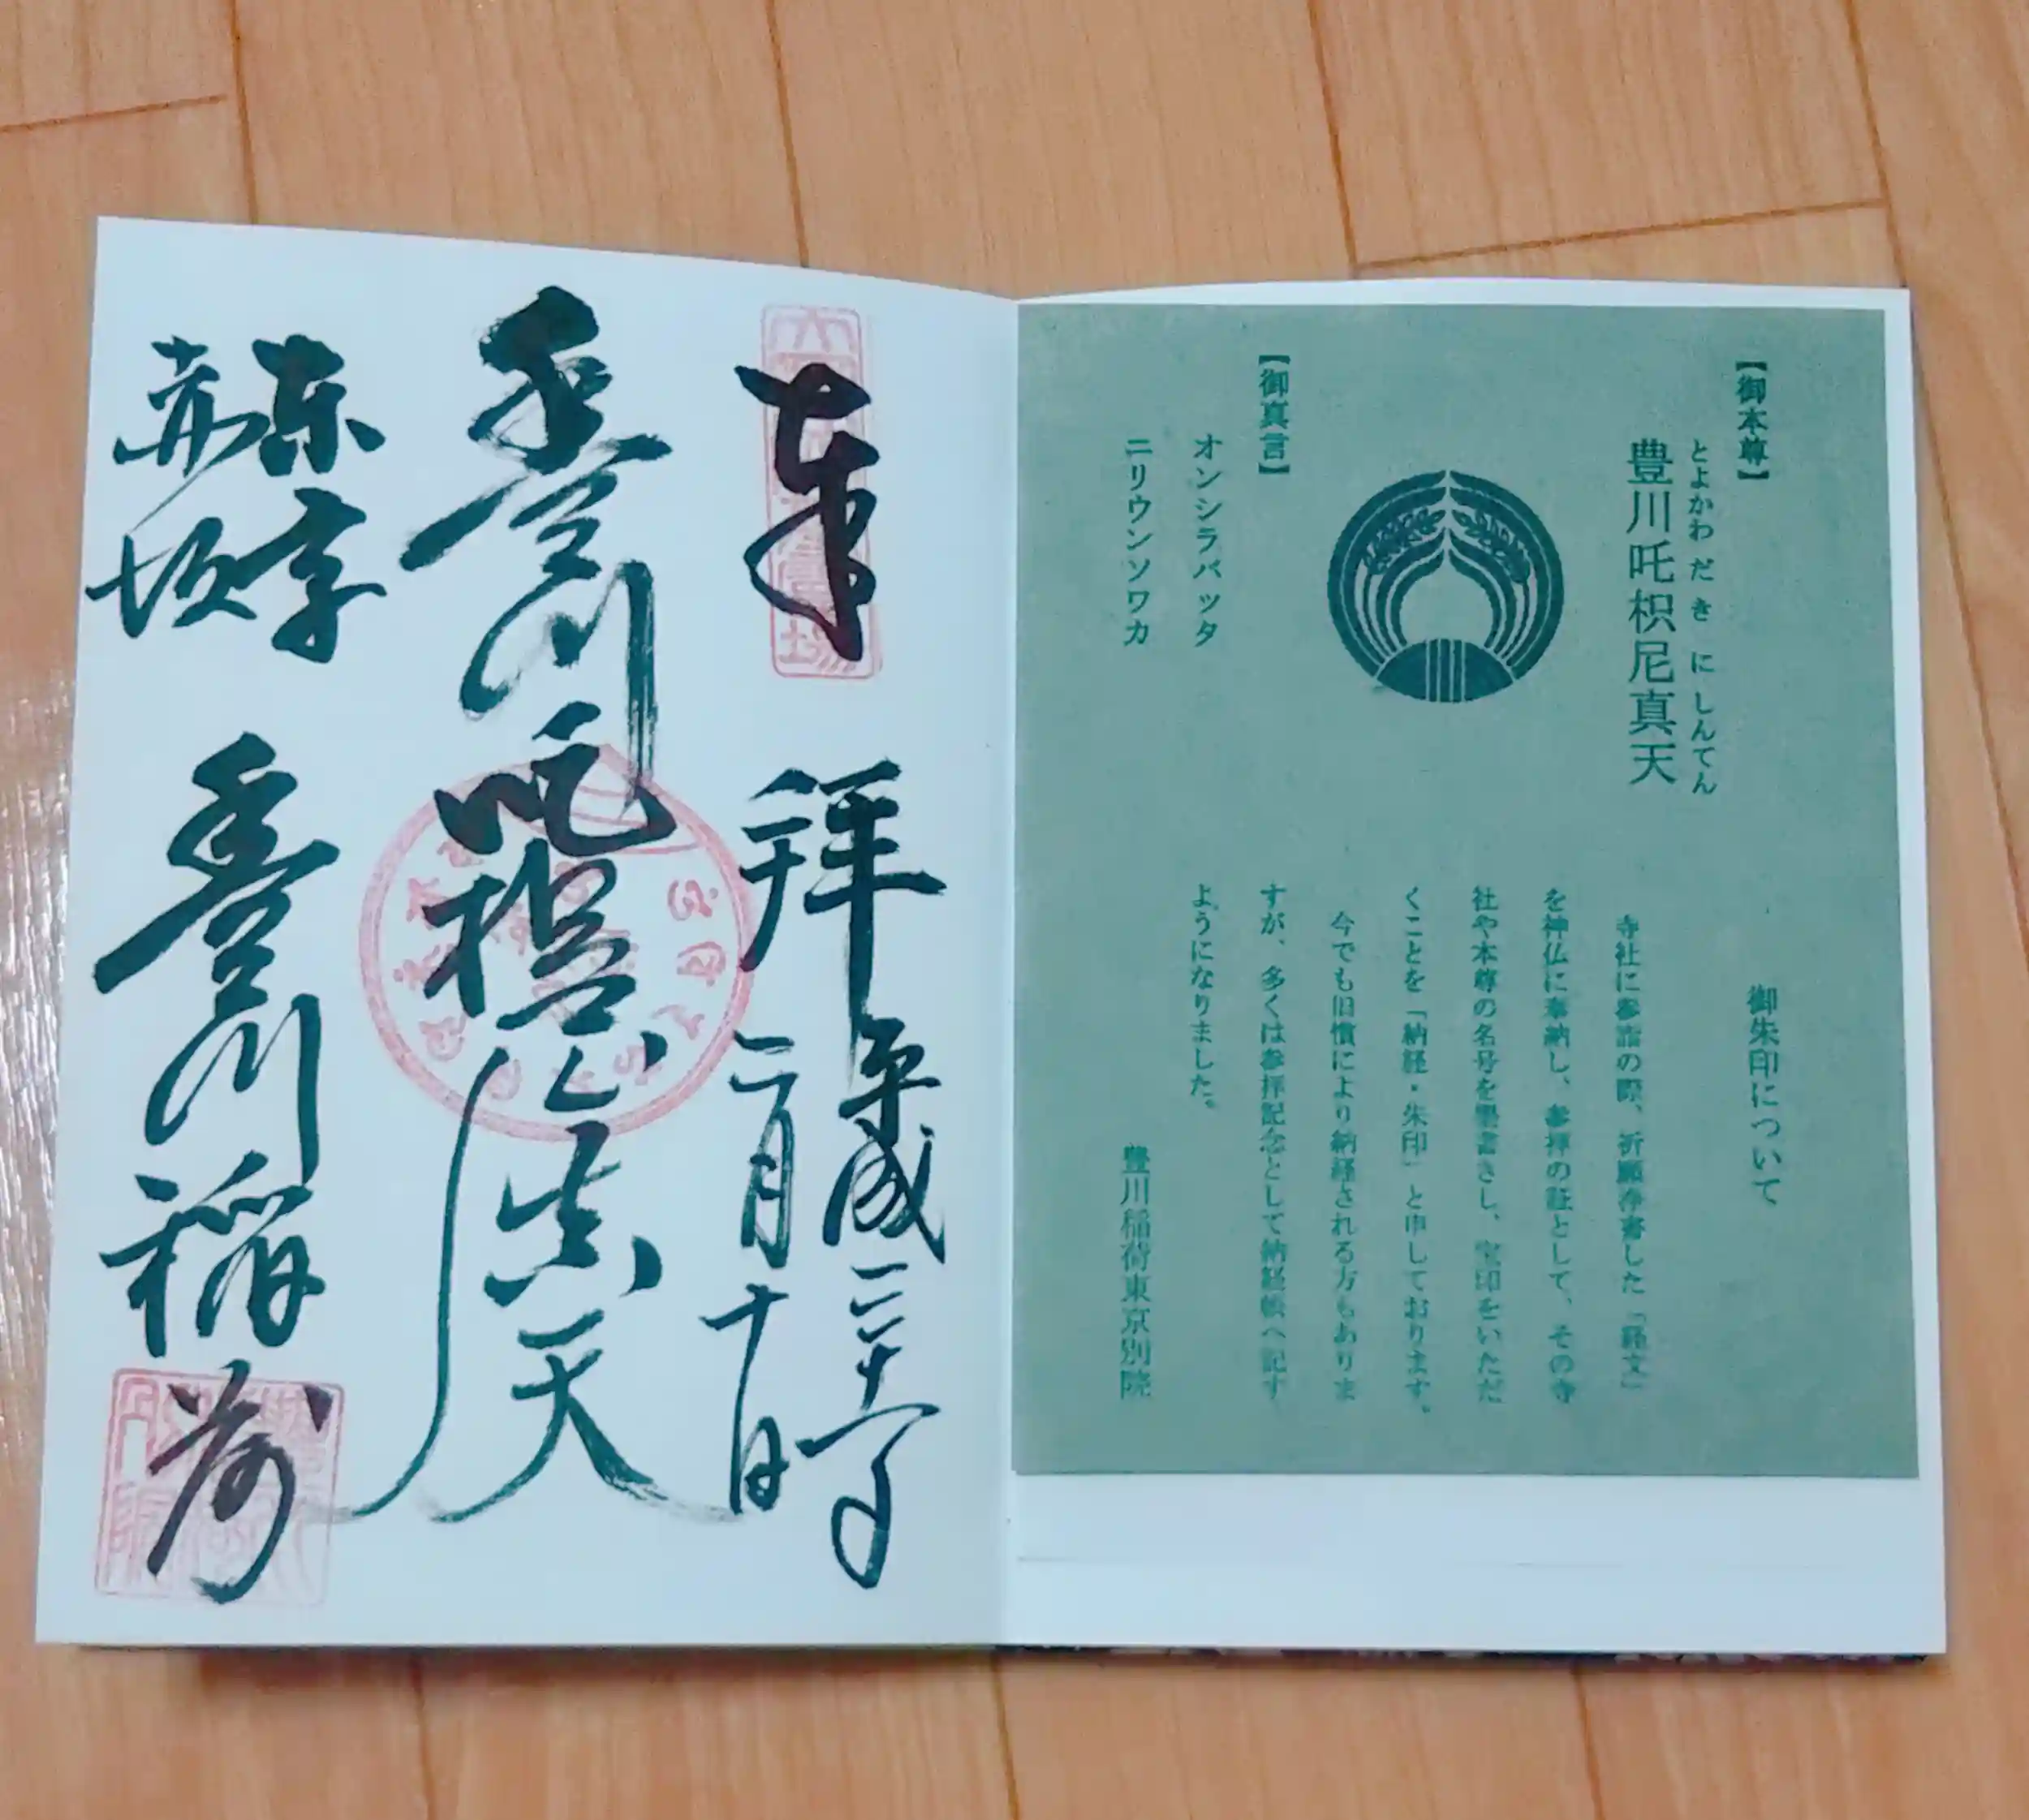 【御本尊】
とよかわ だ き に しんてん
豊川吒枳尼真天
【御真言】
オンシラバッタ
ニリウンソワカ
御朱印について
寺社に参詣の際、祈願浄書した「経文」
を神仏に奉納し、参拝の証として、その寺
社や本尊の名号を墨書きし、宝印をいただ
くことを「納経・朱印」と申しております。
今でも旧慣により納経される方もありま
すが、多くは参拝記念として納経帳へ記す
ようになりました。
豊川稲荷東京別院
奉拝
平成三十年
二月
豊川吒枳尼真天
東京
赤坂
豊川稲荷